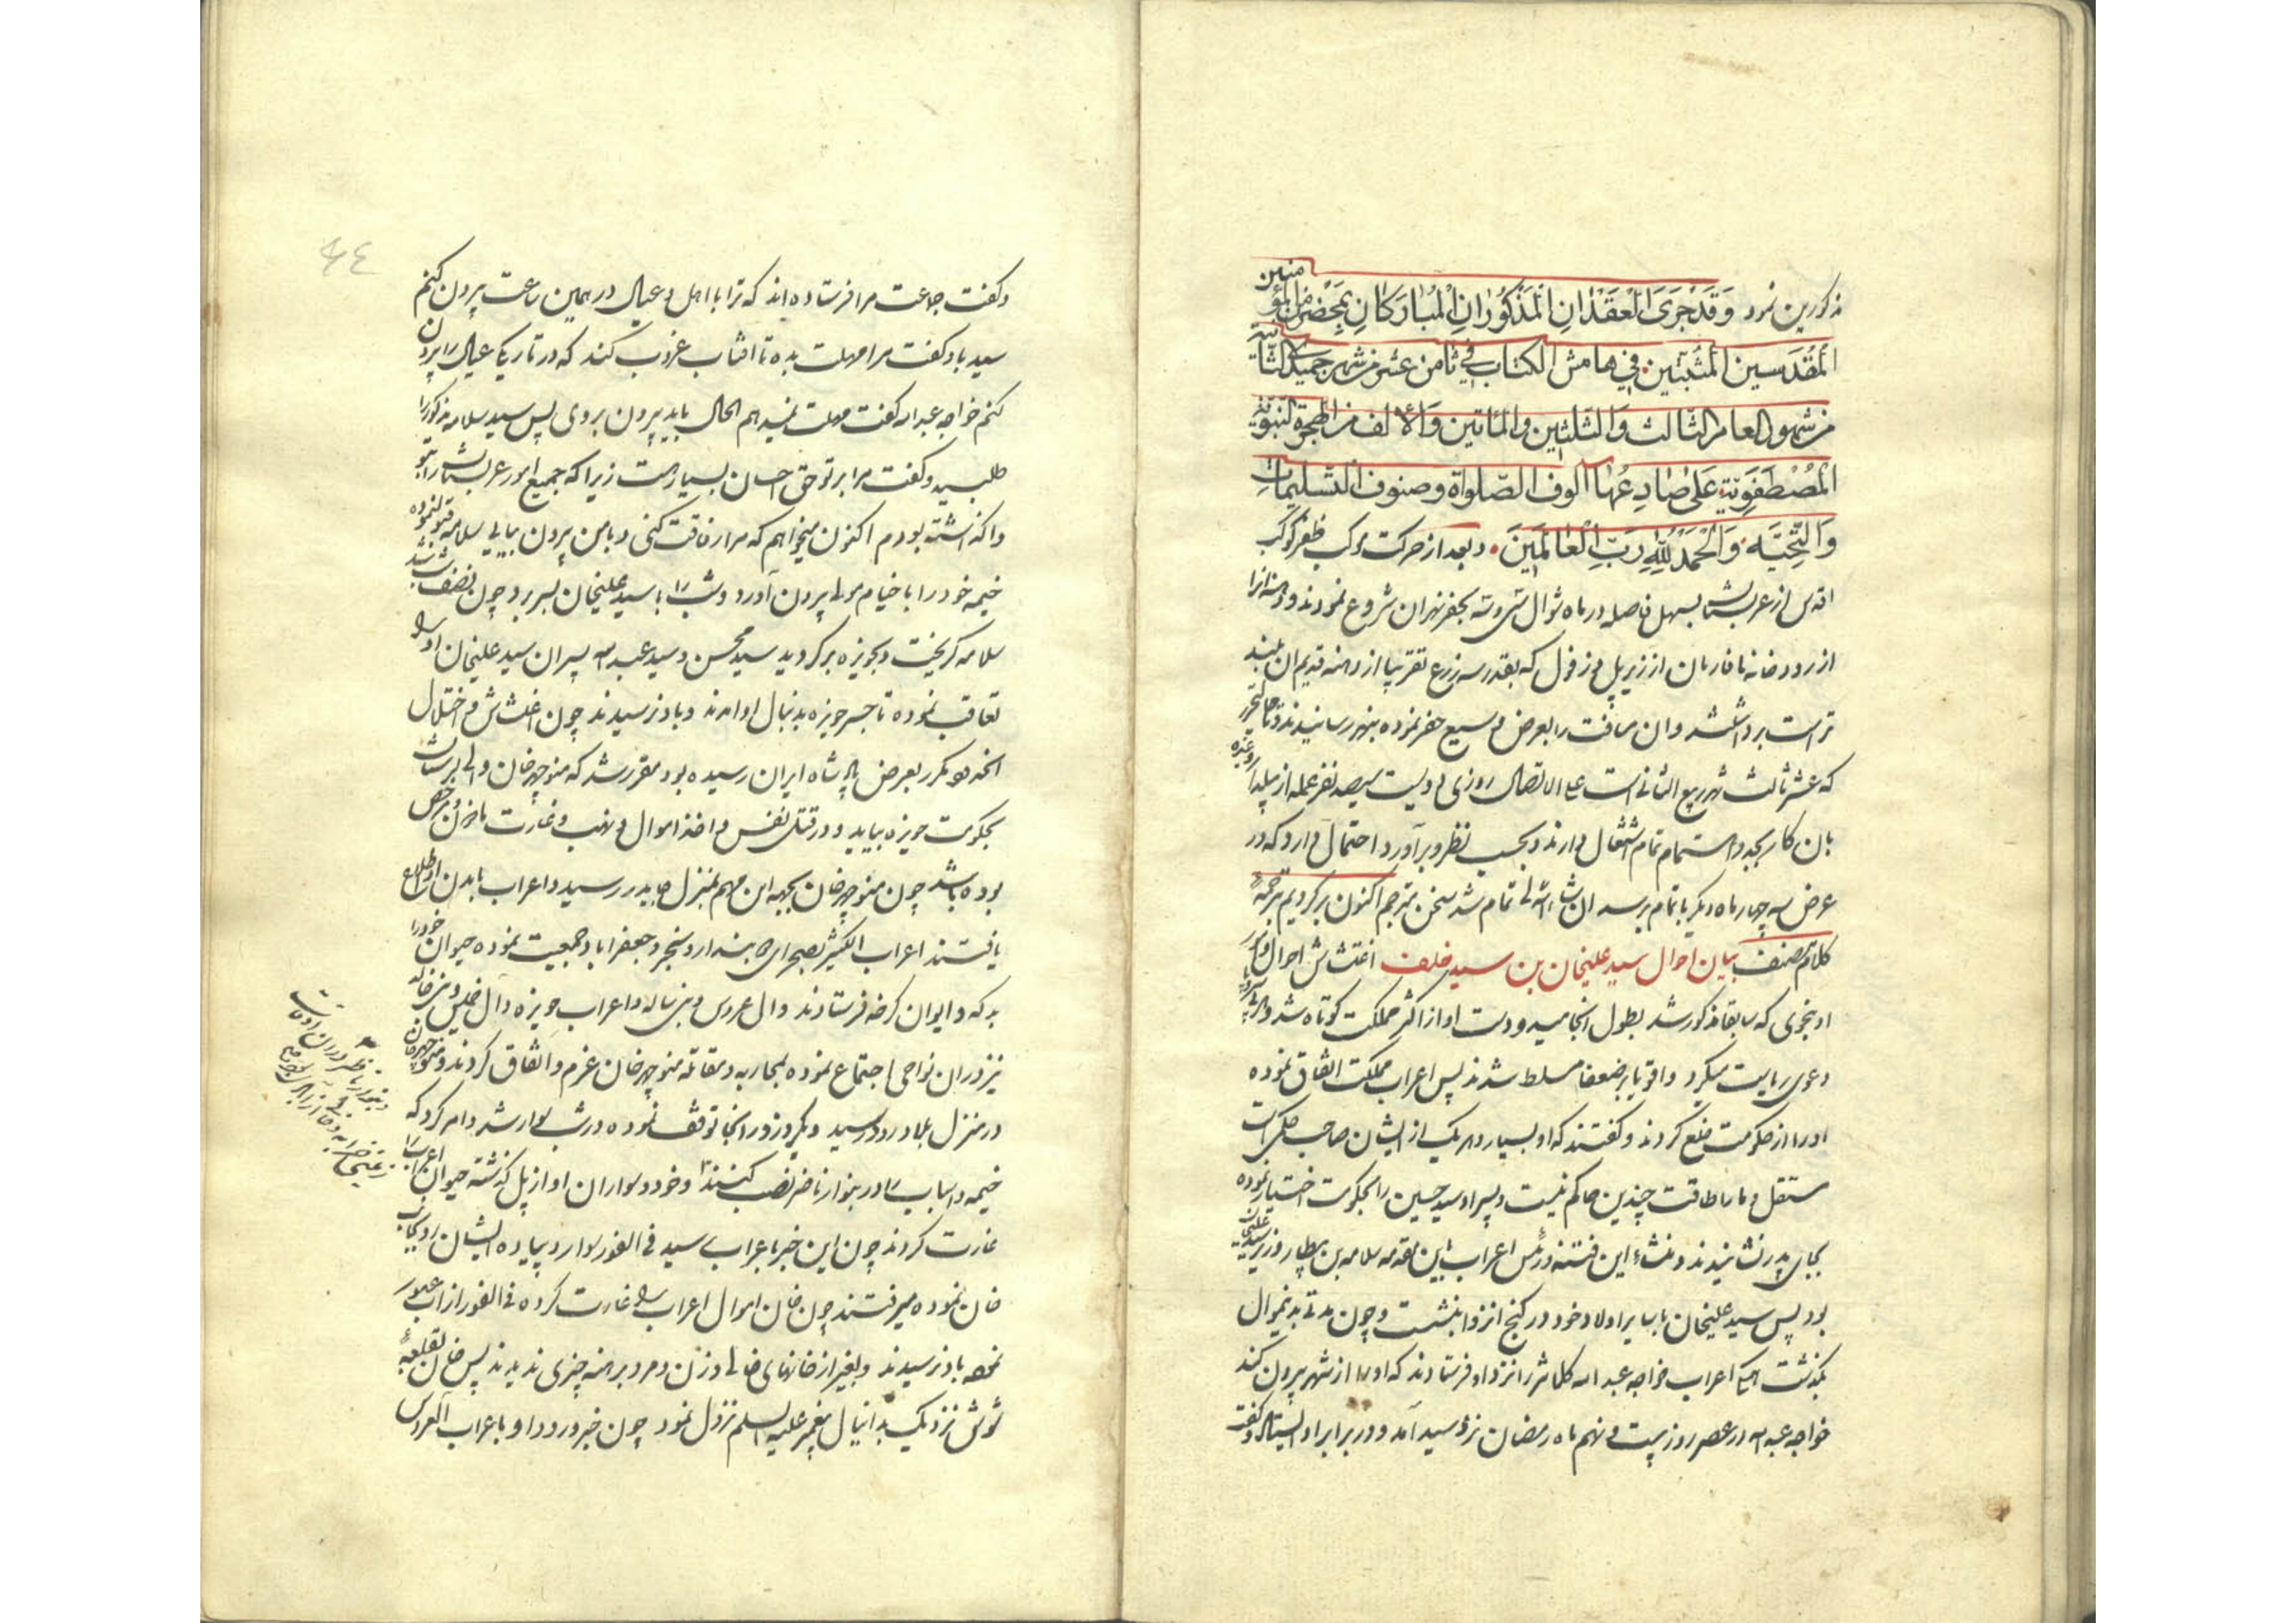 مذکورین نمود وَقَدْ جَرَیَ الْعَقْدٰانِ الْمَذْکُورٰانِ الْمُبٰارَکٰانِ بِمَحْضَرٍ مِنَ الْمُؤمنین
الْمُقَدَسین الْمُثبتین فی هامش الکتاب فی ثامن عشر من شهر جمیدی الثانیة
من شهور العام الثالث والثلثین والمأتین والالف من الهجرة النبویّة
الْمُصْطَفَوِیّة عَلیٰ صٰادِعِهٰا الوف الصّلواة وصنوف التسلیمات
وَالتَّحِیَّه وَالْحَمْدُ لِلّٰهِ رَبِّ الْعٰالَمینَ و بعد از حرکت موکب ظفر کوکب
اقدس از عربستان بسهل فاصله در ماه شوال بحفر نهران شروع نمودند و دهنه انرا
از رودخانه از زیر پل دزفول که بقدر سه زرع تقریبا از دهنه قدیم ان بلند
تر است برداشتند وان مسافت را بعرض وسیع حفر نموده بنهر رسانیدند و تا حال تحریر
که عشر ثالث شهر ربیع الثانی است علی الاتصال روزی دویست سیصد نفر عمله از بیلدار و غیره
بان کار بجد و اهتمام تمام اشتغال دارند و بحسب نظر و برآورد احتمال دارد که در
عرض سه چهار ماه دیگر باتمام برسد ان شاء الله تعالی تمام شد سخن مترجم اکنون برگردیم بترجمهٔ
کلام مصنف بیان احوال سید علیخان بن سید خلف اغتشاش احوال و امور
او بنحوی که سابقا مذکور شد بطول انجامید و دست او از اکثر مملکت کوتاه شد
دعوی ریاست میکرد واقویا بر ضعفا مسلط شدند پس اعراب مملکت اتفاق نموده
او را از حکومت خلع کردند و گفتند که اولاد بسیار دارد هر یک از ایشان صاحب حکمی است
مستقل و ما را طاقت چندین حاکم نیست و پسر او سید حسین را بحکومت اختیار نموده
بجای پدر نشانیدند و منشاء این فتنه و رئیس اعراب باین مقدمه سلامه بن وزیر سید علیخان
بود پس سید علیخان با سایر اولاد خود در کنج انزوا بنشست و چون مدتی بدینمنوال
بگذشت اعراب خواجه عبد الله کلانتر را نزد او فرستادند که او را از شهر بیرون کند
خواجه عبد الله در عصر روز بیست و نهم ماه رمضان نزد سید آمد و در برابر او ایستاد و گفت
و گفت جماعت مرا فرستاده اند که ترا با اهل و عیال در همین ساعت بیرون کنم
سید باو گفت مرا مهلت بده تا افتاب غروب کند که در تاریکی عیال را بیرون
کنم خواجه عبد الله گفت مهلت نمیدهم الحال باید بیرون بروی پس سید سلامه مذکور را
طلبید و گفت مرا بر تو حق احسان بسیار است زیرا که جمیع امور عربستان را بتو
واگذاشته بودم اکنون میخواهم که مرا رفاقت کنی و با من بیرون بیایی سلامه قبول نموده
خیمه خود را با خیام مولی بیرون آورد و شب را با سید علیخان بسر برد چون نصف شب شد
سلامه گریخت و بحویزه برگردید سید محسن و سید عبد الله پسران سید علیخان او را
تعاقب نموده تا جسر حویزه بدنبال او امدند و باو نرسیدند چون اغتشاش و اختلال
مکرر بعرض پادشاه ایران رسیده بود مقرر شد که منوچهر خان والی لرستان
بحکومت حویزه بیاید و در قتل نفس و اخذ اموال و نهب و غارت ماذون و مرخص
بوده باشد چون منوچهر خان بجهه این مهم بمنزل جایدر رسید و اعراب بامدن او اطلاع
یافتند اعراب ال کثیر بصحرای و سنجر و جعفراباد جمعیت نموده حیوان خود را
بدکه و ایوان کرخه فرستادند وال عروس و بنی ساله و اعراب حویزه و آل خمیس و بنی خالد
نیز دران نواحی اجتماع نموده بمحاربه و مقاتله منوچهر خان عزم و اتفاق کردند و منوچهر خان
در منزل بلارود رسید و یکروز در انجا توقف نموده در شب سوار شد و امر کرد که
خیمه و اسباب را در نصب کنند و خود و سواران او از پل گذشته حیوان اعراب را
غارت کردند چون این خبر باعراب رسید فی الفور سوار و پیاده ایشان رو بجانب
خان نموده میرفتند چون خان اموال اعراب را غارت کرده فی الفور از اب عبور
نموده باو نرسیدند و بغیر از خانهای خالی و زن و مرد برهنه چیزی ندیدند پس خان بقلعهٔ
شوش نزدیک بدانیال پیغمبر علیه السلم نزول نمود چون خبر ورود او باعراب ال عروس